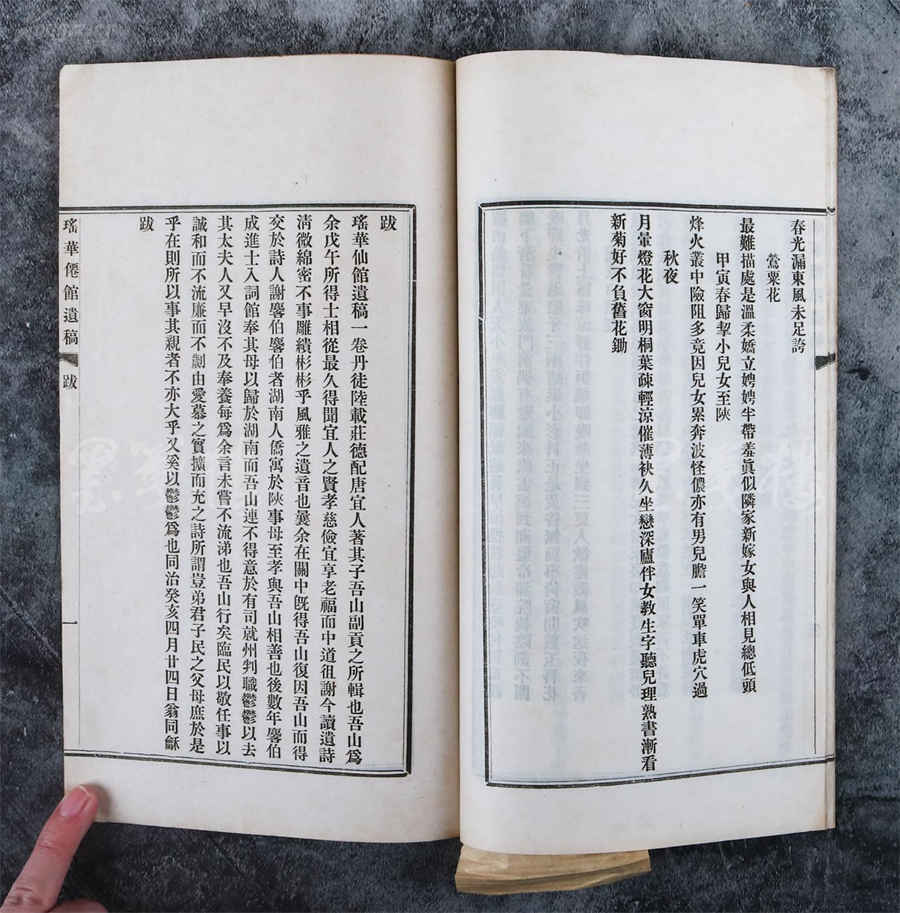 春光漏東風未足誇
鶯粟花
最難描處是溫柔嬌立娉娉半帶羞眞似隣家新嫁女與人相見總低頭
甲寅春歸挈小兒女至陜
烽火叢中險阻多竟因兒女累奔波怪儂亦有男兒膽一笑單車虎穴過
秋夜
月暈燈花大窗明桐葉疎輕涼催薄袂久坐戀深廬伴女敎生字聽兒理熟書漸看
新菊好不負舊花鋤
跋
瑤華仙館遺稿一卷丹徒陸載莊德配唐宜人著其子吾山副貢之所輯也吾山爲
余戊午所得士相從最久得聞宜人之賢孝慈儉宜享老福而中道徂謝今讀遺詩
淸微綿密不事雕繢彬彬乎風雅之遺音也曩余在關中旣得吾山復因吾山而得
交於詩人謝麐伯麐伯者湖南人僑寓於陜事母至孝與吾山相善也後數年麐伯
成進士入詞館奉其母以歸於湖南而吾山連不得意於有司就州判職鬱鬱以去
其太夫人又早沒不及奉養每爲余言未嘗不流涕也吾山行矣臨民以敬任事以
誠和而不流廉而不劌由愛慕之實擴而充之詩所謂豈弟君子民之父母庶於是
乎在則所以事其親者不亦大乎又奚以鬱鬱爲也同治癸亥四月廿四日翁同龢
跋
瑤華僊館遺稿
跋
一